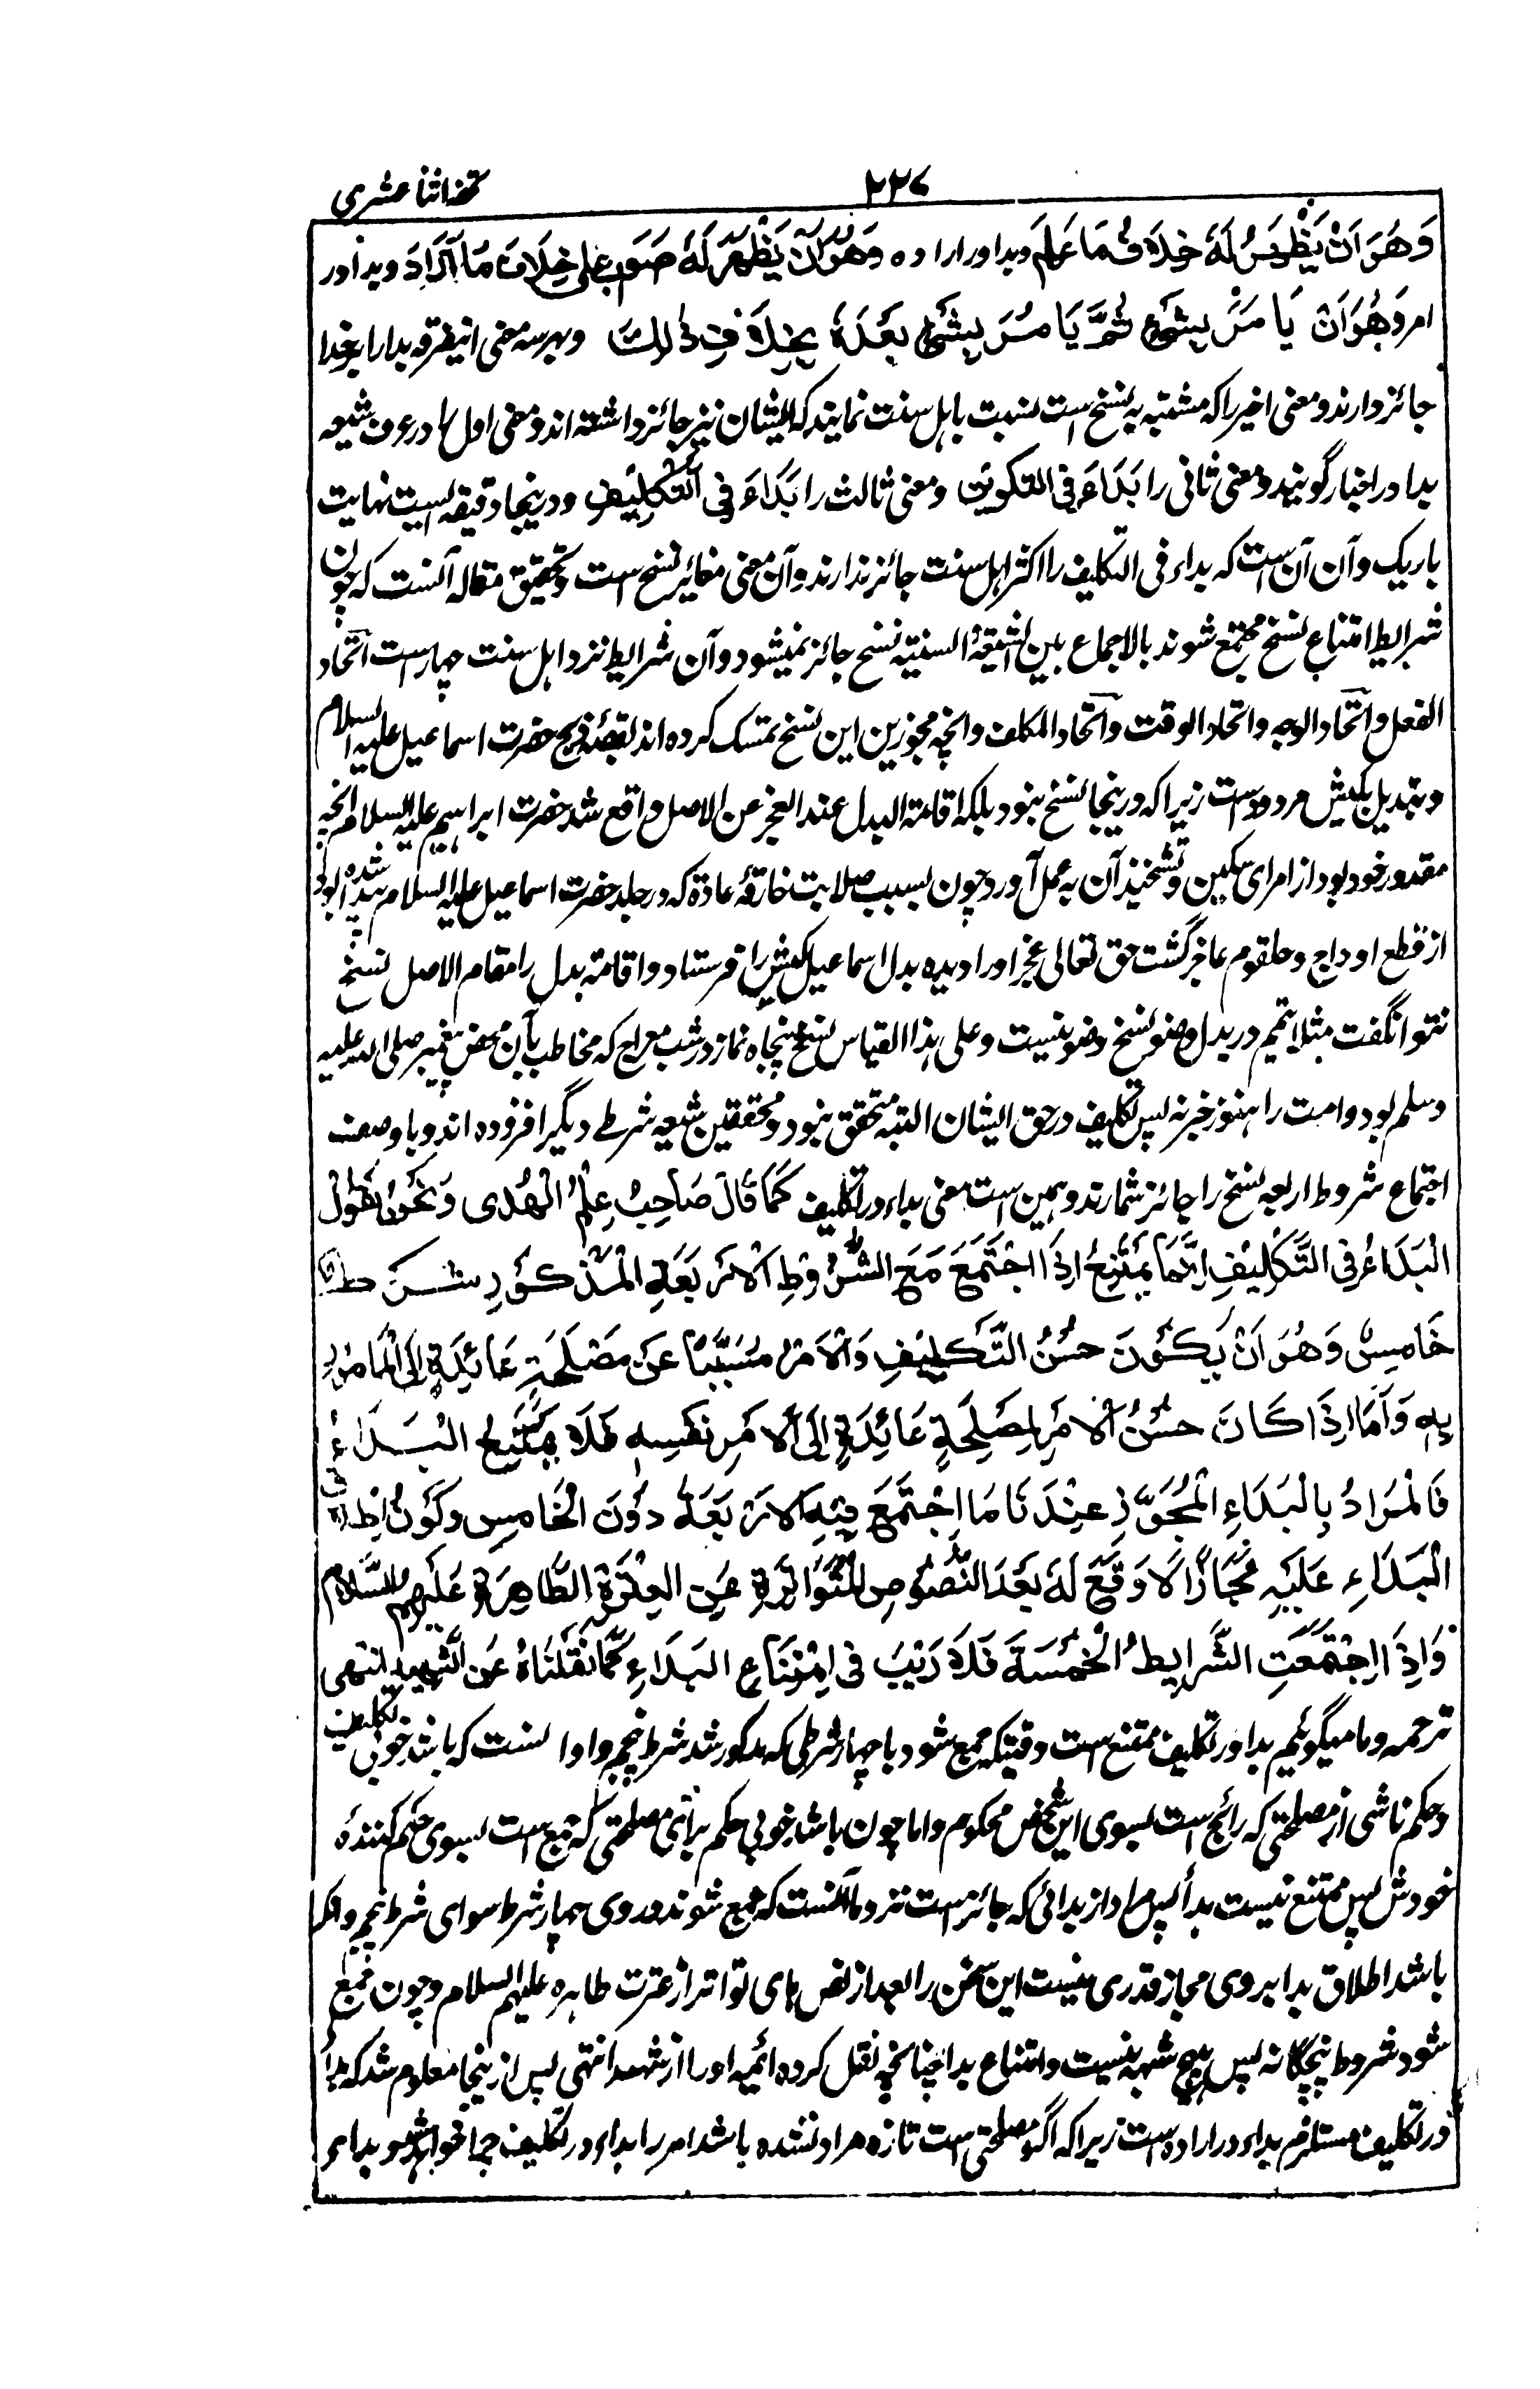 ۲۲۷ تحفه اثنا عشری
وَهُوَ اَنْ يَظْهَرَ لَهُ خِلَافُ مَا عَلِمَ وبدا در اراده وَهُوَ اَنْ يَظْهَرَ لَهُ صَوَبٌ عَلٰى خِلَافِ مَا اَرَادَ وبدا در
امر وَهُوَ اَنْ يَا مُرَ بِشَیْءٍ ثُمَّ يَا مُرَ بِشَیْءٍ بَعْدَهُ بِخِلَافِ ذٰلِكَ وبهرسه معنی اینفرقه بدا را بر خدا
جائز دارند و معنی اخیر را که مشتبه به نسخ است نسبت باهل سنت نمایند که ایشان نیز جائز داشته اند و معنی اول را در عرف شیعه
بدا در اخبار گویند و معنی ثانی را بَدَاءَ فِی التکوین و معنی ثالث را بَدَاءَ فِی التَّکْلِیْفِ و درینجا دقیقه ایست نهایت
باریک و آن آن است که بداء فی التکلیف را اکثر اهل سنت جائز ندارند و آن معنی مغائر نسخ است و تحقیق مقاله آنست که چون
شرایط امتناع نسخ مجتمع شوند بالاجماع بین الشیعة و السنیة نسخ جائز نمیشود و آن شرایط نزد اهل سنت چهار است اتحاد
الفعل و اتحاد الوجه و اتحاد الوقت و اتحاد المکلف و انچه مجوزین این نسخ تمسک کرده اند بقصهٔ ذبح حضرت اسماعیل علیه السلام
و تبدیل بکبش مردود است زیرا که درینجا نسخ نبود بلکه اقامة البدل عند العجز عن الاصل واقع شد حضرت ابراهیم علیه السلام هر انچه
مقدور خود بود از امرای سکین و تشحیذ آن به عمل آورد و چون بسبب صلابت خارقهٔ عادة که در جلد حضرت اسماعیل علیه السلام پیدا شده بود
از قطع اوداج و حلقوم عاجز گشت حق تعالی عجز او را دیده بدل اسماعیل کبش را فرستاد و اقامة بدل را مقام الاصل نسخ
نتوانگفت مثلا تیمم در بدل وضو نسخ وضو نیست و علی هذا القیاس نسخ پنجاه نماز در شب معراج که مخاطب بآن محض پیغمبر صلی الله علیه
وسلم بود و امت را هنوز خبر نه پس تکلیف در حق ایشان البته متحقق نبود و محققین شیعه شرطے دیگر افزوده اند و با وصف
اجتماع شروط اربعه نسخ را جائز شمارند و همین است معنی بداء در تکلیف کَمَا قَالَ صَاحِبُ عِلْمِ الْهُدی وَنَحْنُ نَقُوْلُ
الْبَدَاءُ فِی التَّکْلِیْفِ اِنَّمَا یَمْتَنِعُ اِذَا اجْتَمَعَ مَعَ الشُّرُوْطِ الْاَرْبَعَةِ الْمَذْکُوْرِ شَرْط
خَامِسٌ وَهُوَ اَنْ یَکُوْنَ حُسْنُ التَّکْلِیْفِ وَالْاَمْرُ مُسَبَّبًا عَنْ مَصْلَحَةٍ عَائِدَةٍ اِلَی الْمَامُوْرِ
بِهِ وَاَمَّا اِذَا کَانَ حُسْنُ الْاَمْرِ لِمَصْلَحَةٍ عَائِدَةٍ اِلَی الْاَمْرِ نَفْسِهِ فَلَا یَمْتَنِعُ الْبَدَاءُ
فَالْمُرَادُ بِالْبَدَاءِ الْمُجَوَّزِ عِنْدَنَا مَا اِجْتَمَعَ فِیْهِ الْاَرْبَعَةُ دُوْنَ الْخَامِسِ وَکَوْنُ اِطْلَاقِ
الْبَدَاءِ عَلَیْهِ مَجَازًا لَا وَقْعَ لَهُ بَعْدَ النُّصُوْصِ الْمُتَوَاتِرَةِ عَنِ الْعِتْرَةِ الطَّاهِرَةِ عَلَیْهِمُ السَّلَامُ
وَاِذَا اِجْتَمَعَتِ الشَّرَایِطُ الْخَمْسَةَ فَلَا رَیْبَ فِی اِمْتِنَاعِ الْبَدَاءِ کَمَا نَقَلْنَاهُ عَنِ الشَّهِیْدِ انتهی
ترجمه و ما میگوئیم بدا در تکلیف ممتنع است وقتیکه جمع شود با چهار شرطی که مذکور شد شرط پنجم و او اینست که باشد خوبی تکلیف
و حکم ناشی از مصلحتی که رائج است بسوی این شخص محکوم و اما چون باشد خوبی حکم برای مصلحتی که راجع است بسوی حکم کنندهٔ
خودش پس ممتنع نیست بدأ پس مراد از بدائی که جائز است نزد ما آنست که جمع شوند در وی چهار شرط سوای شرط پنجم و انکه
باشد اطلاق بدا بروی مجاز قدری نیست این سخن را بعد از نص های تواتر از عترت طاهره علیهم السلام و چون جمع
شود شروط پنجگانه پس هیچ شبهه نیست در امتناع بدا چنانچه نقل کرده ائیم او را از شهید انتهی پس ازینجا معلوم شد که بدأ
در تکلیف مستلزم بداء در اراده است زیرا که اگر مصلحتی است تازه مراد نشده باشد امر را بداء در تکلیف چرا خواهد شد و بداء